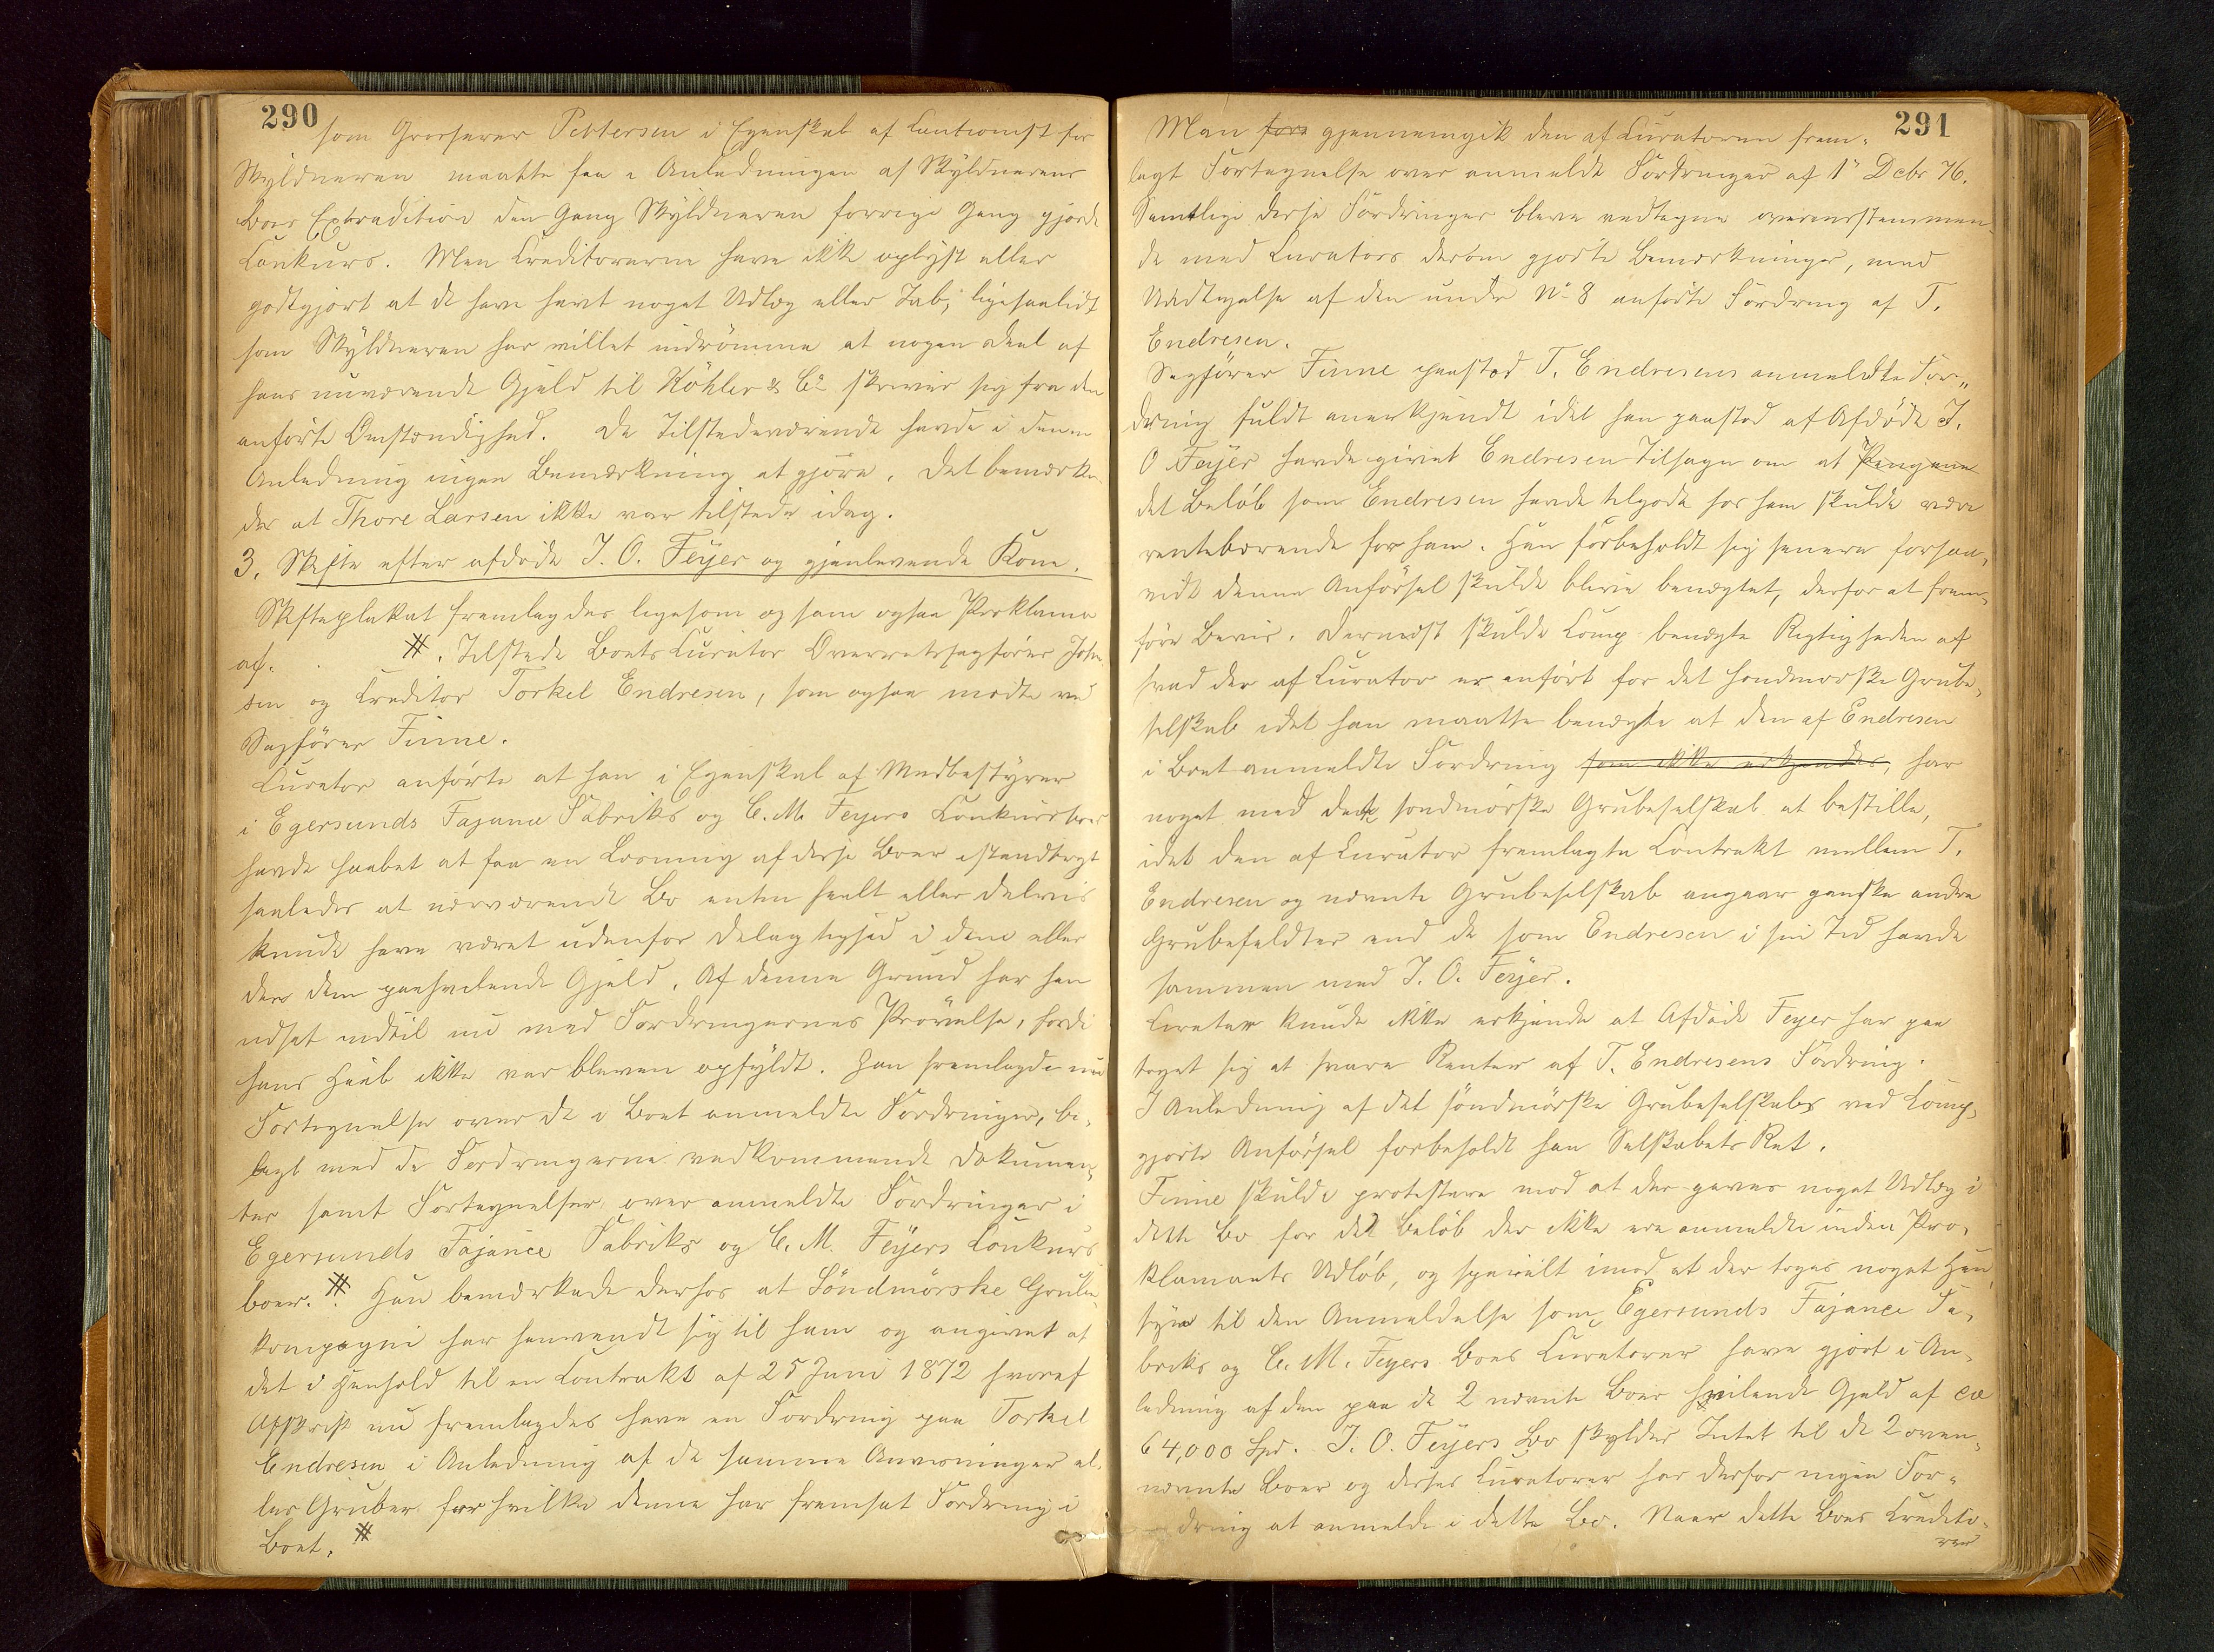 290
som Grosserer Pettersen i Egenskab af Cautionist for
Skyldneren maatte faa i Anledningen af Skyldnerens
Boes Extradition den Gang Skyldneren forrige Gang gjorde
Konkurs. Men Creditorerne have ikke oplyst eller
godtgjort at de have havt noget Udlæg eller Tab, ligesaalidt
som Skyldneren har villet indrömme at nogen Deel af
hans nuværende Gjæld til Köhler & Co skriver sig fra den
anförte Omstændighed. De Tilstedeværende havde i denne
Anledning ingen Bemærkning at gjöre. Det bemærke-
des at Thore Larsen ikke var tilstede idag.
3. Skifte efter afdöde J. O. Feyer og gjenlevende Kone.
Skifteplakat fremlagdes ligesom og som ogsaa Proklama
af. #. Tilstede Boets Curator Overretssagförer John-
sen og Creditor Torkel Endresen, som ogsaa mödte ved
Sagförer Finne.
Curator anförte at han i Egenskab af Medbestyrer
i Egersunds Fajance Fabriks og C. M. Feyers Konkursboer
havde haabet at faa en Ordning af disse Boer istandbragt
saaledes at nærværende Bo enten heelt eller delvis
kunde have været udenfor Delagtighed i dem eller
den dem paahvilende Gjæld. Af denne Grund har han
udsat indtil nu med Fordringernes Prövelse, fordi
hans Haab ikke var bleven opfyldt. Han fremlagde nu
Fortegnelse over de i Boet anmeldte Fordringer, be-
lagt med de Fordringerne vedkommende Dokumen-
ter samt Fortegnelser over anmeldte Fordringer i
Egersunds Fajance Fabriks og C. M. Feyers Konkurs
boer. # Han bemærkede derhos at Söndmörske Grube-
kompagni har henvendt sig til ham og angivet at
det i Henhold til en Contrakt af 25 Juni 1872 hvoraf
Afskrift nu fremlagdes have en Fordring paa Torkel
Endresen i Anledning af de samme Anvisninger el-
ler Gruber for hvilke denne har fremsat Fordring i
Boet. #
291
Man fore gjennemgik den af Curatoren frem-
lagt Fortegnelse over anmeldte Fordringer af 1' Decbr 76.
Samtlige disse Fordringer bleve vedtagne overensstemmen-
de med Curators derom gjorte Bemærkninger, med
Undtagelse af den under No 8 anförte Fordring af T.
Endresen.
Sagförer Finne paastod T. Endresens anmeldte For-
dring fuldt anerkjendt idet han paastod at Afdöde J.
O Feyer havde givet Endresen Tilsagn om at Pengene
det Belöb som Endresen havde tilgode hos ham skulde være
rentebærende for ham. Han forbeholdt sig senere forsaa-
vidt denne Anförsel skulde blive benægtet, derfor at frem-
före Bevis. Dernæst skulde Comp benægte Rigtigheden af
hvad der af Curator er anfört for det söndmörske Grube-
selskab idet han maatte benægte at den af Endresen
i Boet anmeldte Fordring som ikke erkjendes, har
noget med dette söndmörske Grubeselskab at bestille,
idet den af Curator fremlagte Contrakt mellem T.
Endresen og nævnte Grubeselskab angaar ganske andre
Grubefeldter end de som Endresen i sin Tid havde
sammen med J. O. Feyer.
Curator kunde ikke erkjende at Afdöde Feyer har paa
taget sig at svare Renter af T. Endresens Fordring.
I Anledning af det söndmörske Grubeselskabs ved Comp.
gjorte Anförsel forbeholdt han Selskabets Ret.
Finne skulde protestere mod at der gaves noget Udlæg i
dette Bo for de Belöb der ikke ere anmeldte inden Pro-
klamaets Udlöb, og specielt imod at der toges noget Hen-
syn til den Anmeldelse som Egersunds Fajance Fa-
briks og C. M. Feyers Boes Curatorer have gjort i An-
ledning af den paa de 2 nævnte Boer hvilende Gjæld af ca
64,000 Spd. J. O. Feyers Bo skylder Intet til de 2 oven-
nævnte Boer og disses Curatorer har derfor ingen For-
dring at anmelde i dette Bo. Naar dette Boes Credito-
rer